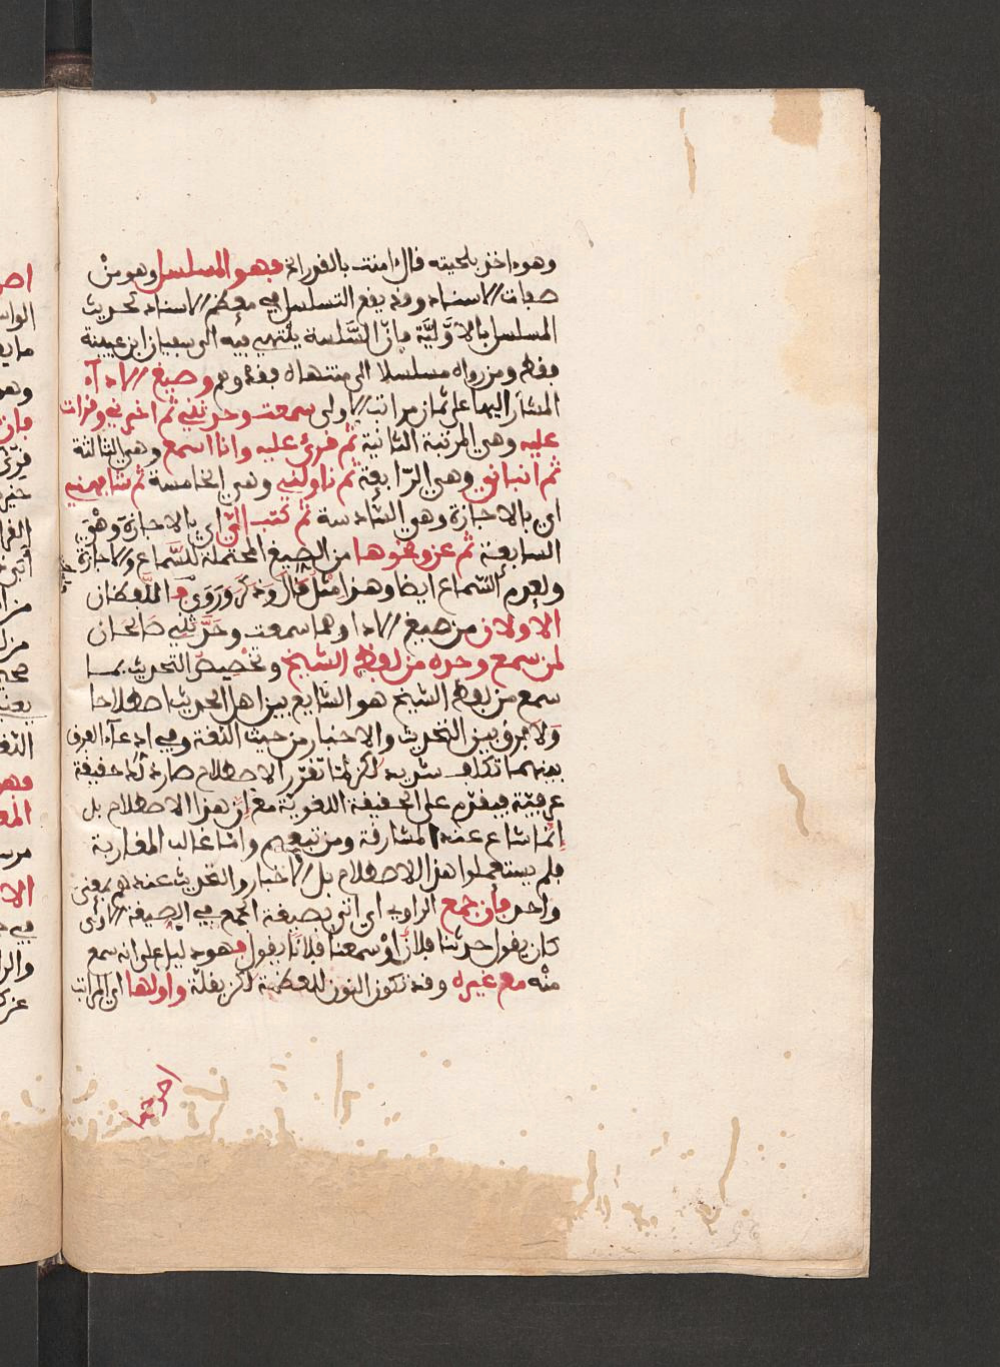 وهو اخذ بلحيته قال امنت بالقدر الخ فهو المسلسل وهو من
صفات الاسناد وقد يقع التسلسل في معظم الاسناد كحديث
المسلسل بالاوّليّة فانّ السّلسة ينتهي فيه الى سفيان ابن عيينة
فقط ومن رواه مسلسلا الى منتهاه فقد وهم وصيغ الادآء
المشار اليها على ثمان مراتب الاولى سمعت وحدثني ثم اخبرني وقرات
عليه وهي المرتبة الثانية ثم قرئ عليه وانا اسمع وهي الثالثة
ثم انباني وهي الرّابعة ثم ناولني وهي الخامسة ثم شافهني
اي بالاجازة وهي السّادسة ثم كتب اليّ اي بالاجازة وهي
السابعة ثم عن ونحوها من الصيغ المحتملة للسّماع والاجازة
ولعدم السّماع ايضا وهذا مثل قال وذكر وروى فاللّفظان
الاولان من صيغ الادا وهما سمعت وحدّثني صالحان
لمن سمع وحده من لفظ الشيخ وتخصيص التحديث بما
سمع من لفظ الشيخ هو الشايع بين اهل الحديث اصطلاحا
ولا فرق بين التحديث والاخبار من حيث اللغة وفي ادعآء الفرق
بينهما تكلف شديد لكن لمّا تقرّر الاصطلاح صار ذلك حقيقة
عرفيّة فيقدّم على الحقيقة اللغويّة مع ان هذا الاصطلاح بل
انما شاع عند المشارقة ومن تبعهم وامّا غالب المغاربة
فلم يستعملوا هذا الاصطلاح بل الاخبار والتحديث عندهم بمعنى
واحد فان جمع الراوي اي اتى بصيغة الجمع في الصيغة الاولى
كان يقول حدثنا فلان او سمعنا فلانا يقول فهو دليل على انه سمع
منه مع غيره وقد تكون النون للعظمة لكن بقلّة واولها اي المراتب